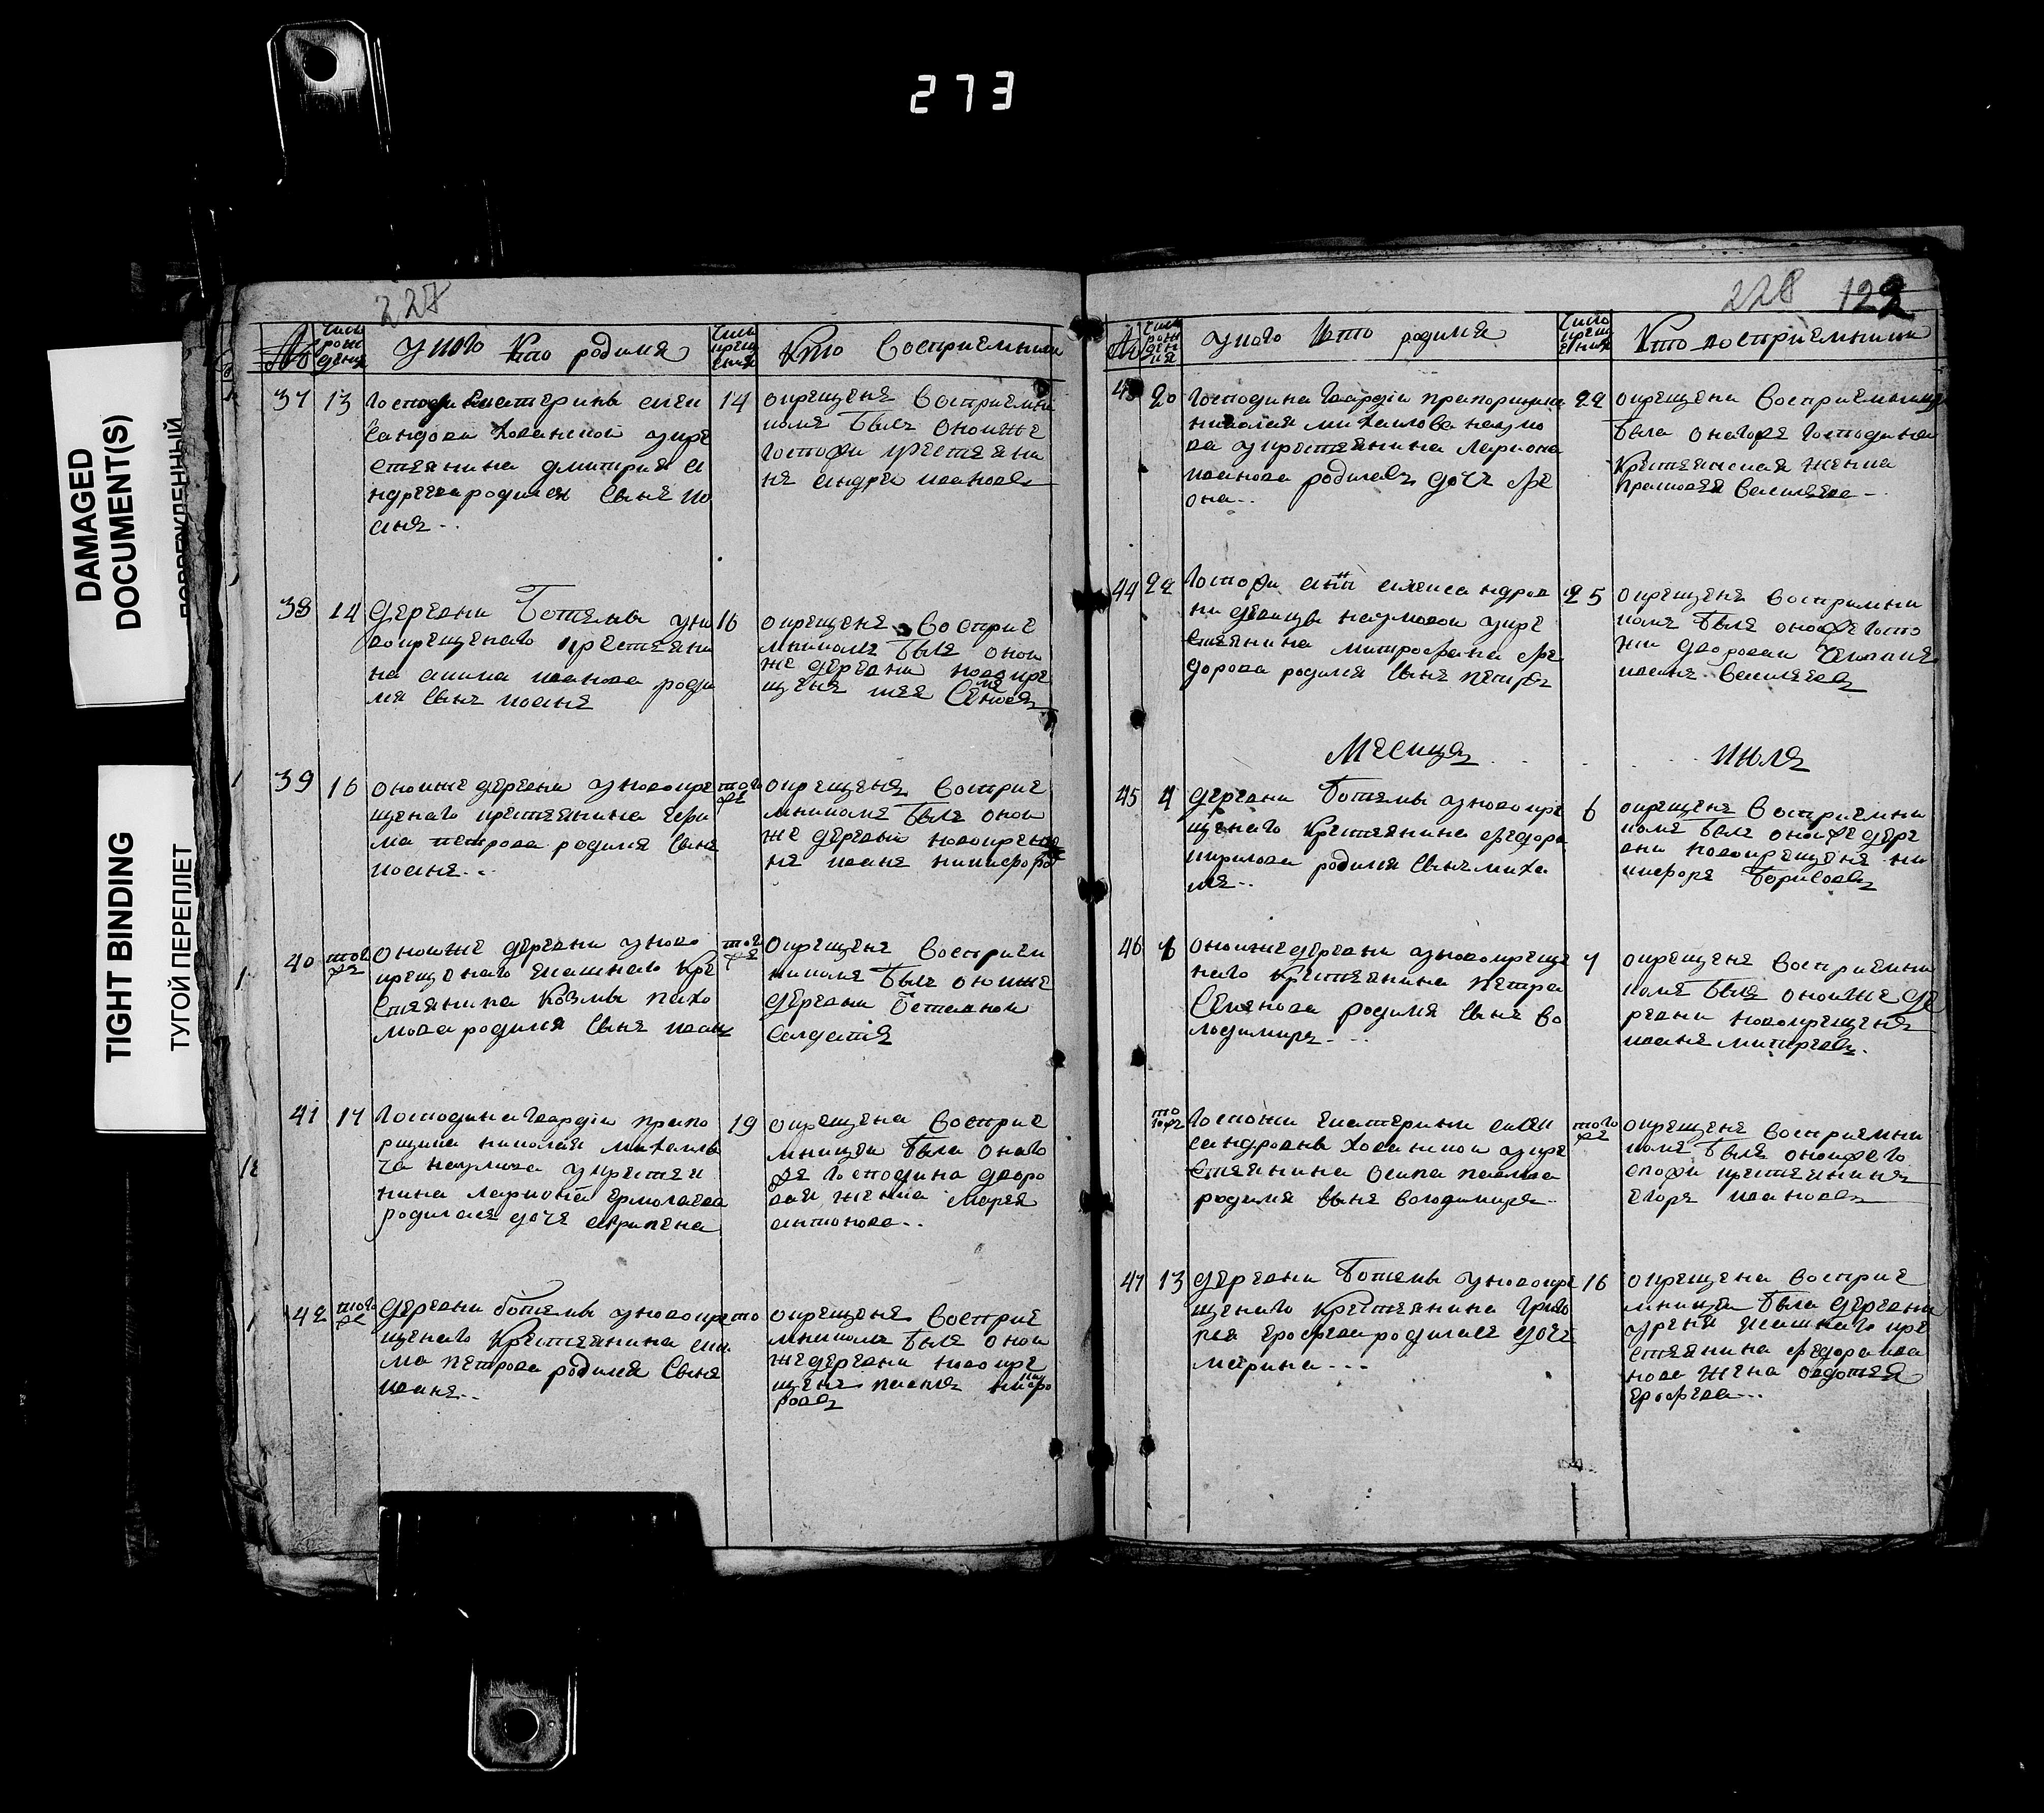 273
DAMAGED
DOCUMENT(S)
ПОВРЕЖДЕННЫЙ
TIGHT BINDING
ТУГОЙ ПЕРЕПЛЕТ
227
№
число рож дения
у кого кто родился
число крещ ения
кто восприемники
37 13
екатерины алек
сандровы хованской у кре
стьянина дмитрия а
ндреева родился сынъ ио
анъ
14
окрещенъ восприемни
комъ былъ оной же
госпожи крестьяни
нъ андрей ивановъ
38 14
деревни ботьмы у но
вокрещенаго крестьяни
на акима иванова роди
лся сынъ иоанъ
16
окрещенъ восприе
мникомъ былъ оной
же деревни новокре
щенъ
39 16
оной же деревни у новокре
щенаго крестьянина ефи
ма петрова родился сынъ
иоанъ
того же
окрещенъ восприе
мникомъ былъ оной
же деревни новокреще
нъ иванъ никифоро
40 того же
оной же деревни у ново
крещенаго ясашнаго кре
стьянина козмы пахо
мова родился сынъ иванъ
того же
окрещенъ восприем
никомъ былъ оной же
деревни отставной
салдатъ
41 17
господина гвардіи прапо
рщика николая михайлы
ча наумова у крестья
нина лариона ермолаева
родилась дочь агрипена
19
окрещена восприе
мницей была онаго
же господина дворо
вай женка марья
антонова
42 того же
деревни ботьмы у новокре
щенаго крестьянина аки
ма петрова родился сынъ
иванъ
то
окрещенъ восприе
мникомъ былъ оной
же деревни новокре
щенъ павелъ никифо
ровъ
228 122
№
число рож ден ия
у кого кто родился
число крещ ения
кто восприемники
43 20
господина гвардіи прапорщика
николая михайлова наумо
ва у крестьянина лариона
иванова родилась дочь фе
она
22
окрещена восприемницей
была онаго же господина
крестьянская женка
прасковья васильева
44 22
госпожи александров
ны девицы наумовой у кре
стьянина митрофана фе
дорова родился сынъ петръ
25
окрещенъ восприемни
комъ былъ оной же госпо
жи дворовай человекъ
иванъ васильевъ
месяца июля
45 4
деревни ботьмы у новокре
щенаго крестьянина федора
кирилова родился сынъ миха
илъ
6
окрещенъ восприемни
комъ былъ оной же дере
вни новокрещенъ ни
кифоръ борисовъ
46 6
оной же деревни у новокреще
наго крестьянина петра
семенова родился сынъ во
лодимиръ
7
окрещенъ восприемни
комъ былъ оной же де
ревни новокрещенъ
иванъ
того же
госпожи екатерины алек
сандровны хованской у кре
стьянина осипа павлова
родился сынъ володимиръ
того же
окрещенъ восприемни
комъ былъ оной же го
спожи крестьянинъ
егоръ ивановъ
47 13
деревни ботьмы у новокре
щенаго крестьянина григо
рья ерофеева родилась дочь
марина
16
окрещена восприе
мницей была деревни
урени ясашнаго кре
стьянина федора ива
нова жена авдотья
ерофеева